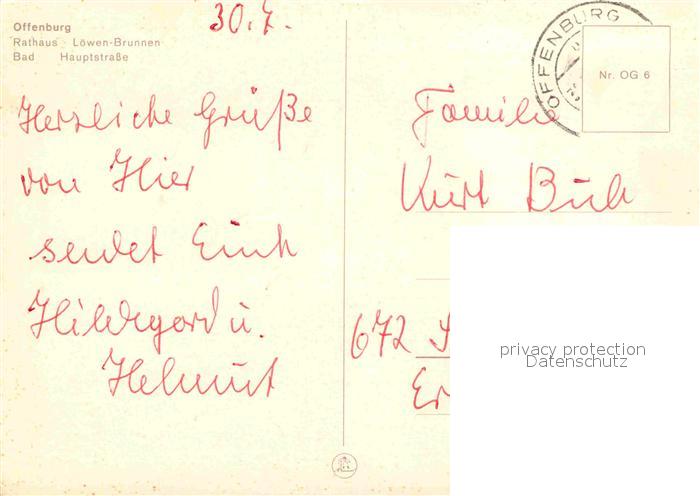 Offenburg
Rathaus Löwen-Brunnen
Bad Hauptstraße
30.7.
Herzliche Grüße
von Hier
sendet Euch
Hildegard u.
Helmut
OFFENBURG
Nr. OG 6
Familie
Kurt
672
Er
privacy protection
Datenschutz